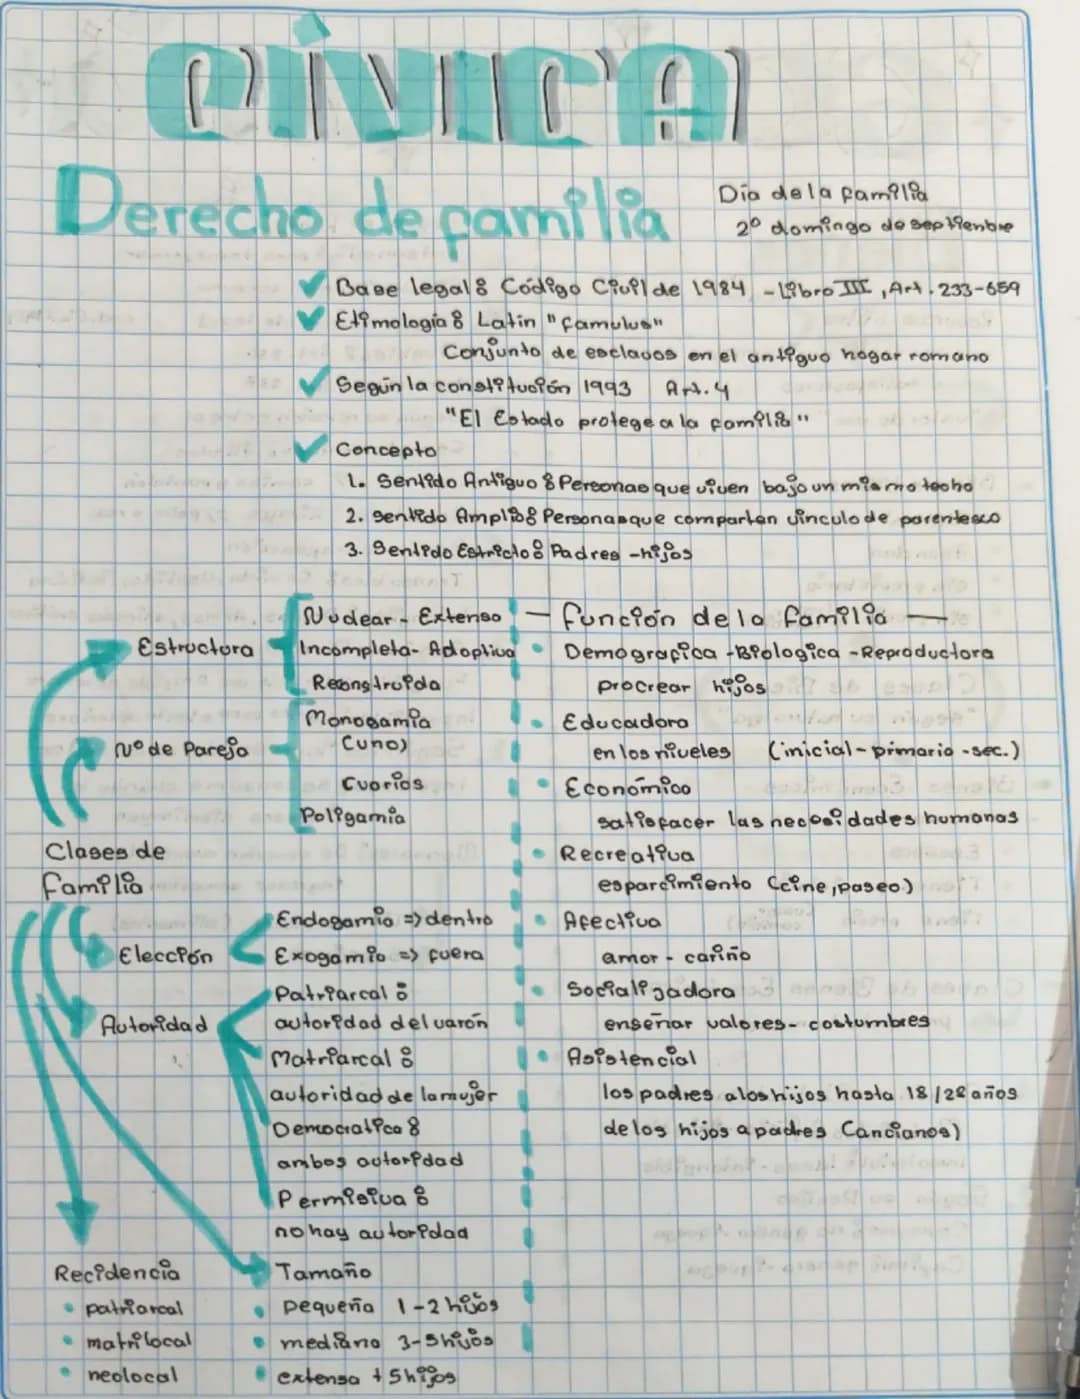 CÍVICA
Derecho de familia
Día de la familia
2º domingo de septienbre
Base legal: Código Civil de 1984 - Libro III, Art. 233-659
Etimología: Latin "famulus"
Conjunto de esclavos en el antiguo hogar romano
Según la constitución 1993 Art. 4
"El Estado protege a la familia"
Concepto
1. Sentido Antiguo: Personas que viven bajo un mismo techo
2. Sentido Amplio: Personas que comparten vinculo de parentesco
3. Sentido Estricto: Padres - hijos
Estructura
Nuclear - Extensa
Incompleta - Adoptiva
Reconstruida
Nº de Pareja
Monogamia
(uno)
(varios
Poligamia
Clases de
familia
Elección
Endogamia => dentro
Exogamia => fuera
Autoridad
Patriarcal:
autoridad del varón
Matriarcal:
autoridad de la mujer
Democratica:
ambos autoridad
Permisiva:
no hay autoridad
Recidencia
patriarcal
matrilocal
neolocal
Tamaño
pequeña 1-2 hijos
mediana 3-5 hijos
extensa +5 hijos
— función de la familia —
Demografica - Biologica - Reproductora
procrear hijos
Educadora
en los niveles (inicial - primario - sec.)
Económico
satisfacer las necesidades humanas
Recreativa
esparcimiento (cine, paseo)
Afectiva
amor - cariño
Socializadora
enseñar valores - costumbres
Asistencial
los padres a los hijos hasta 18/28 años
de los hijos a padres (ancianos)